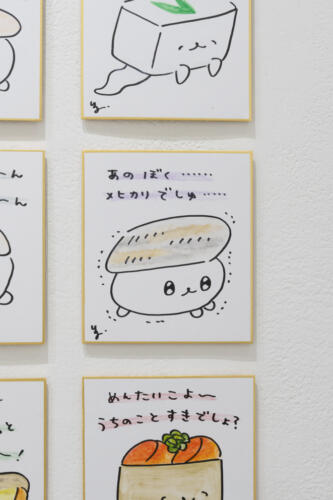 あの ぼく ……
メヒカリ でしゅ ……
めんたいこよ〜
うちのこと すきでしょ?